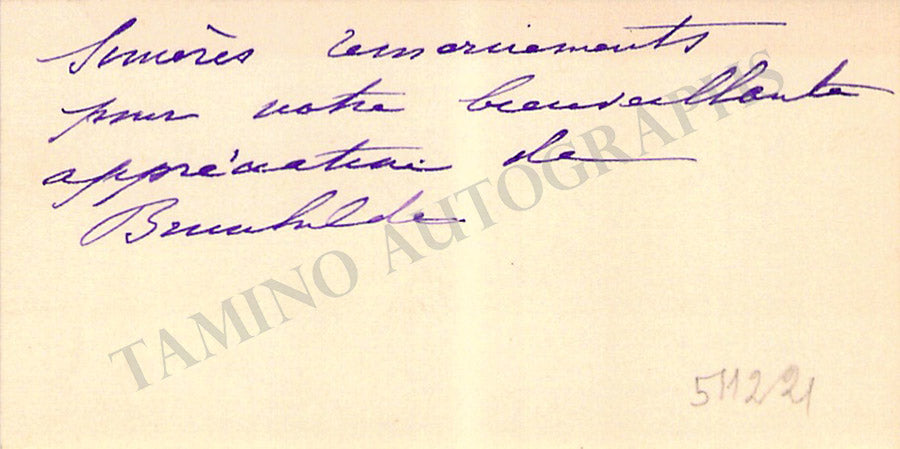 Sincères remerciements
pour votre bienveillante
appréciation de
Brunhilde
TAMINO AUTOGRAPHS
511221